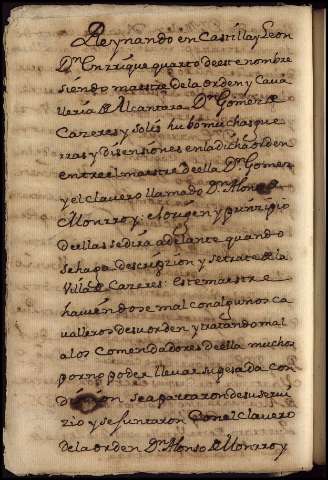 Reynando en Castilla y Leon
Dn Enrrique quarto de este nombre
siendo maestre de la orden y Cava
lleria de Alcantara Dn Gomez de
Cazeres y solis hubo muchas gue
rras y disensiones en la dicha orden
entre el maestre de ella Dn Gomez
y el clavero llamado Dn Alonso de
Monrroy; el origen y prinzipio
de ellas se dira adelante quando
se haga descripzion y se trate de la
Villa de Cazeres: este maestre
haviendose mal con algunos ca
valleros de su orden y tratando mal
a los Comendadores de ella muchos
por no poder llevar su pesada con
dizion se apartaron de su servi
zio y se juntaron con el Clavero
de la orden Dn Alonso de Monrroy